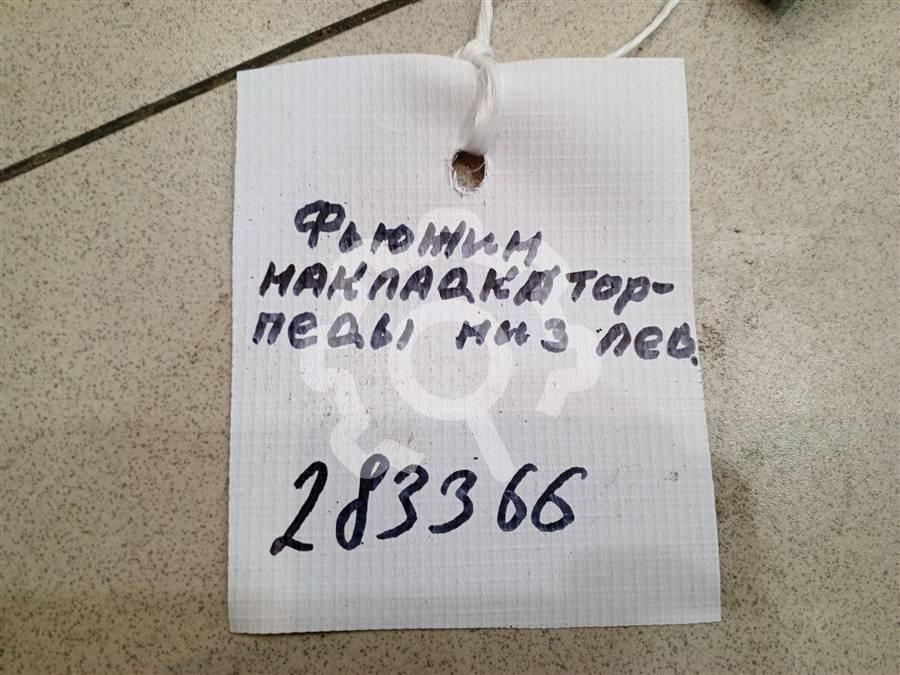 Фьюжин
накладка тор-
педы низ лев.
283366